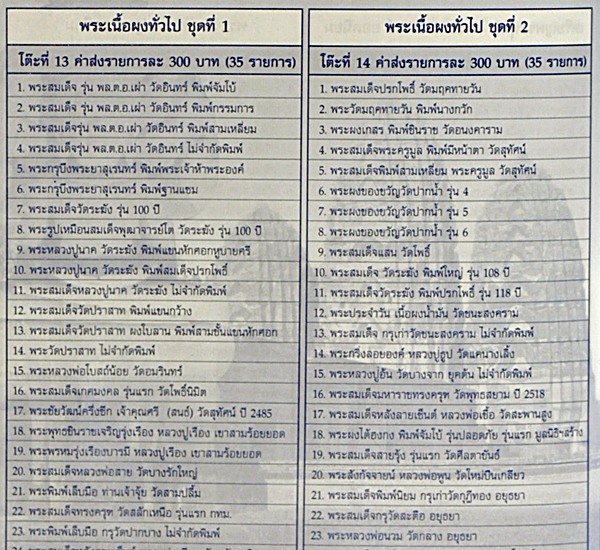 พระเนื้อผงทั่วไป ชุดที่ 1
โต๊ะที่ 13 ค่าส่งรายการละ 300 บาท (35 รายการ)
1. พระสมเด็จ รุ่น พล.ต.อ.เผ่า วัดอินทร์ พิมพ์จัมโบ้
2. พระสมเด็จ รุ่น พล.ต.อ.เผ่า วัดอินทร์ พิมพ์กรรมการ
3. พระสมเด็จรุ่น พล.ต.อ.เผ่า วัดอินทร์ พิมพ์สามเหลี่ยม
4. พระสมเด็จรุ่น พล.ต.อ.เผ่า วัดอินทร์ ไม่จำกัดพิมพ์
5. พระกรุบึงพระยาสุเรนทร์ พิมพ์พระเจ้าห้าพระองค์
6. พระกรุบึงพระยาสุเรนทร์ พิมพ์ฐานแซม
7. พระสมเด็จวัดระฆัง รุ่น 100 ปี
8. พระรูปเหมือนสมเด็จพุฒาจารย์โต วัดระฆัง รุ่น 100 ปี
9. พระหลวงปู่นาค วัดระฆัง พิมพ์แขนหักศอกหูบายศรี
10. พระหลวงปู่นาค วัดระฆัง พิมพ์สมเด็จปรกโพธิ์
11. พระสมเด็จหลวงปู่นาค วัดระฆัง ไม่จำกัดพิมพ์
12. พระสมเด็จวัดปราสาท พิมพ์แขนกว้าง
13. พระสมเด็จวัดปราสาท ผงใบลาน พิมพ์สามชั้นแขนหักศอก
14. พระวัดปราสาท ไม่จำกัดพิมพ์
15. พระหลวงพ่อโบสถ์น้อย วัดอมรินทร์
16. พระสมเด็จเกศมงคล รุ่นแรก วัดโพธิ์นิมิต
17. พระชัยวัฒน์ครึ่งซีก เจ้าคุณศรี (สนธ์) วัดสุทัศน์ ปี 2485
18. พระพุทธชินราชเจริญรุ่งเรือง หลวงปู่เรือง เขาสามร้อยยอด
19. พระพรหมรุ่งเรืองบารมี หลวงปู่เรือง เขาสามร้อยยอด
20. พระสมเด็จหลวงพ่อสาย วัดบางรักใหญ่
21. พระพิมพ์เล็บมือ ท่านเจ้าจุ้ย วัดสามปลื้ม
22. พระสมเด็จทรงครุฑ วัดสลักเหนือ รุ่นแรก กทม.
23. พระพิมพ์เล็บมือ กรุวัดปากบาง ไม่จำกัดพิมพ์
พระเนื้อผงทั่วไป ชุดที่ 2
โต๊ะที่ 14 ค่าส่งรายการละ 300 บาท (35 รายการ)
1. พระสมเด็จปรกโพธิ์ วัดมฤคทายวัน
2. พระวัดมฤคทายวัน พิมพ์นางกวัก
3. พระผงเกสร พิมพ์ชินราช วัดอนงคาราม
4. พระสมเด็จพระครูมูล พิมพ์มีหน้าตา วัดสุทัศน์
5. พระสมเด็จพิมพ์สามเหลี่ยม พระครูมูล วัดสุทัศน์
6. พระผงของขวัญวัดปากน้ำ รุ่น 4
7. พระผงของขวัญวัดปากน้ำ รุ่น 5
8. พระผงของขวัญวัดปากน้ำ รุ่น 6
9. พระสมเด็จแสน วัดโพธิ์
10. พระสมเด็จ วัดระฆัง พิมพ์ใหญ่ รุ่น 108 ปี
11. พระสมเด็จวัดระฆัง พิมพ์ปรกโพธิ์ รุ่น 118 ปี
12. พระประจำวัน เนื้อผงน้ำมัน วัดชนะสงคราม
13. พระสมเด็จ กรุเก่าวัดชนะสงคราม ไม่จำกัดพิมพ์
14. พระกริ่งลอยองค์ หลวงปู่ธูป วัดแคนางเลิ้ง
15. พระหลวงปู่อัน วัดบางจาก ยุคต้น ไม่จำกัดพิมพ์
16. พระสมเด็จมหาราชทรงครุฑ วัดพุทธสยาม ปี 2518
17. พระสมเด็จหลังลายเซ็นต์ หลวงพ่อเชื้อ วัดสะพานสูง
18. พระผงไต้ฮงกง พิมพ์จัมโบ้ รุ่นปลอดภัย รุ่นแรก มูลนิธิฯสร้าง
19. พระสมเด็จสายรุ้ง รุ่นแรก วัดศีลตาขันธ์
20. พระสังกัจจายน์ หลวงพ่อพูน วัดใหม่ปิ่นเกลียว
21. พระสมเด็จพิมพ์นิยม กรุเก่าวัดกุฎีทอง อยุธยา
22. พระสมเด็จกรุวัดสะตือ อยุธยา
23. พระหลวงพ่อนวม วัดกลาง อยุธยา